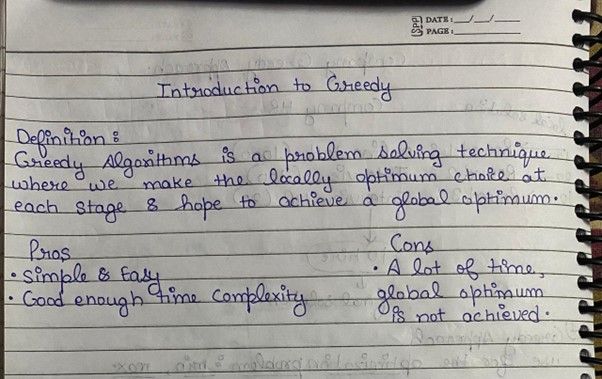 SPP
DATE: __/__/__
PAGE:
Introduction to Greedy
Definition:
Greedy Algorithms is a problem solving technique
where we make the locally optimum choice at
each stage & hope to achieve a global optimum.
Pros
• Simple & Easy
• Good enough time complexity
Cons
• A lot of time,
global optimum
is not achieved.